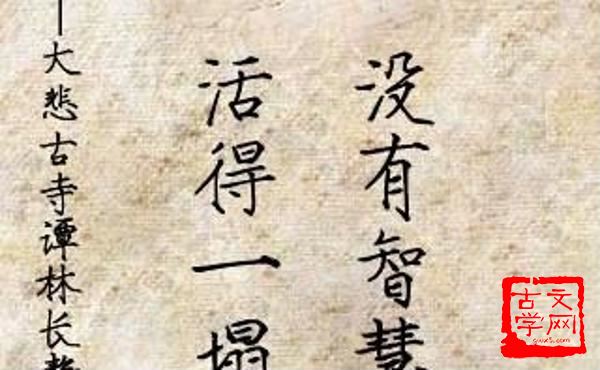 没有智慧
活得一塌
——大悲古寺谭林长
古文
学网
guwx5.com